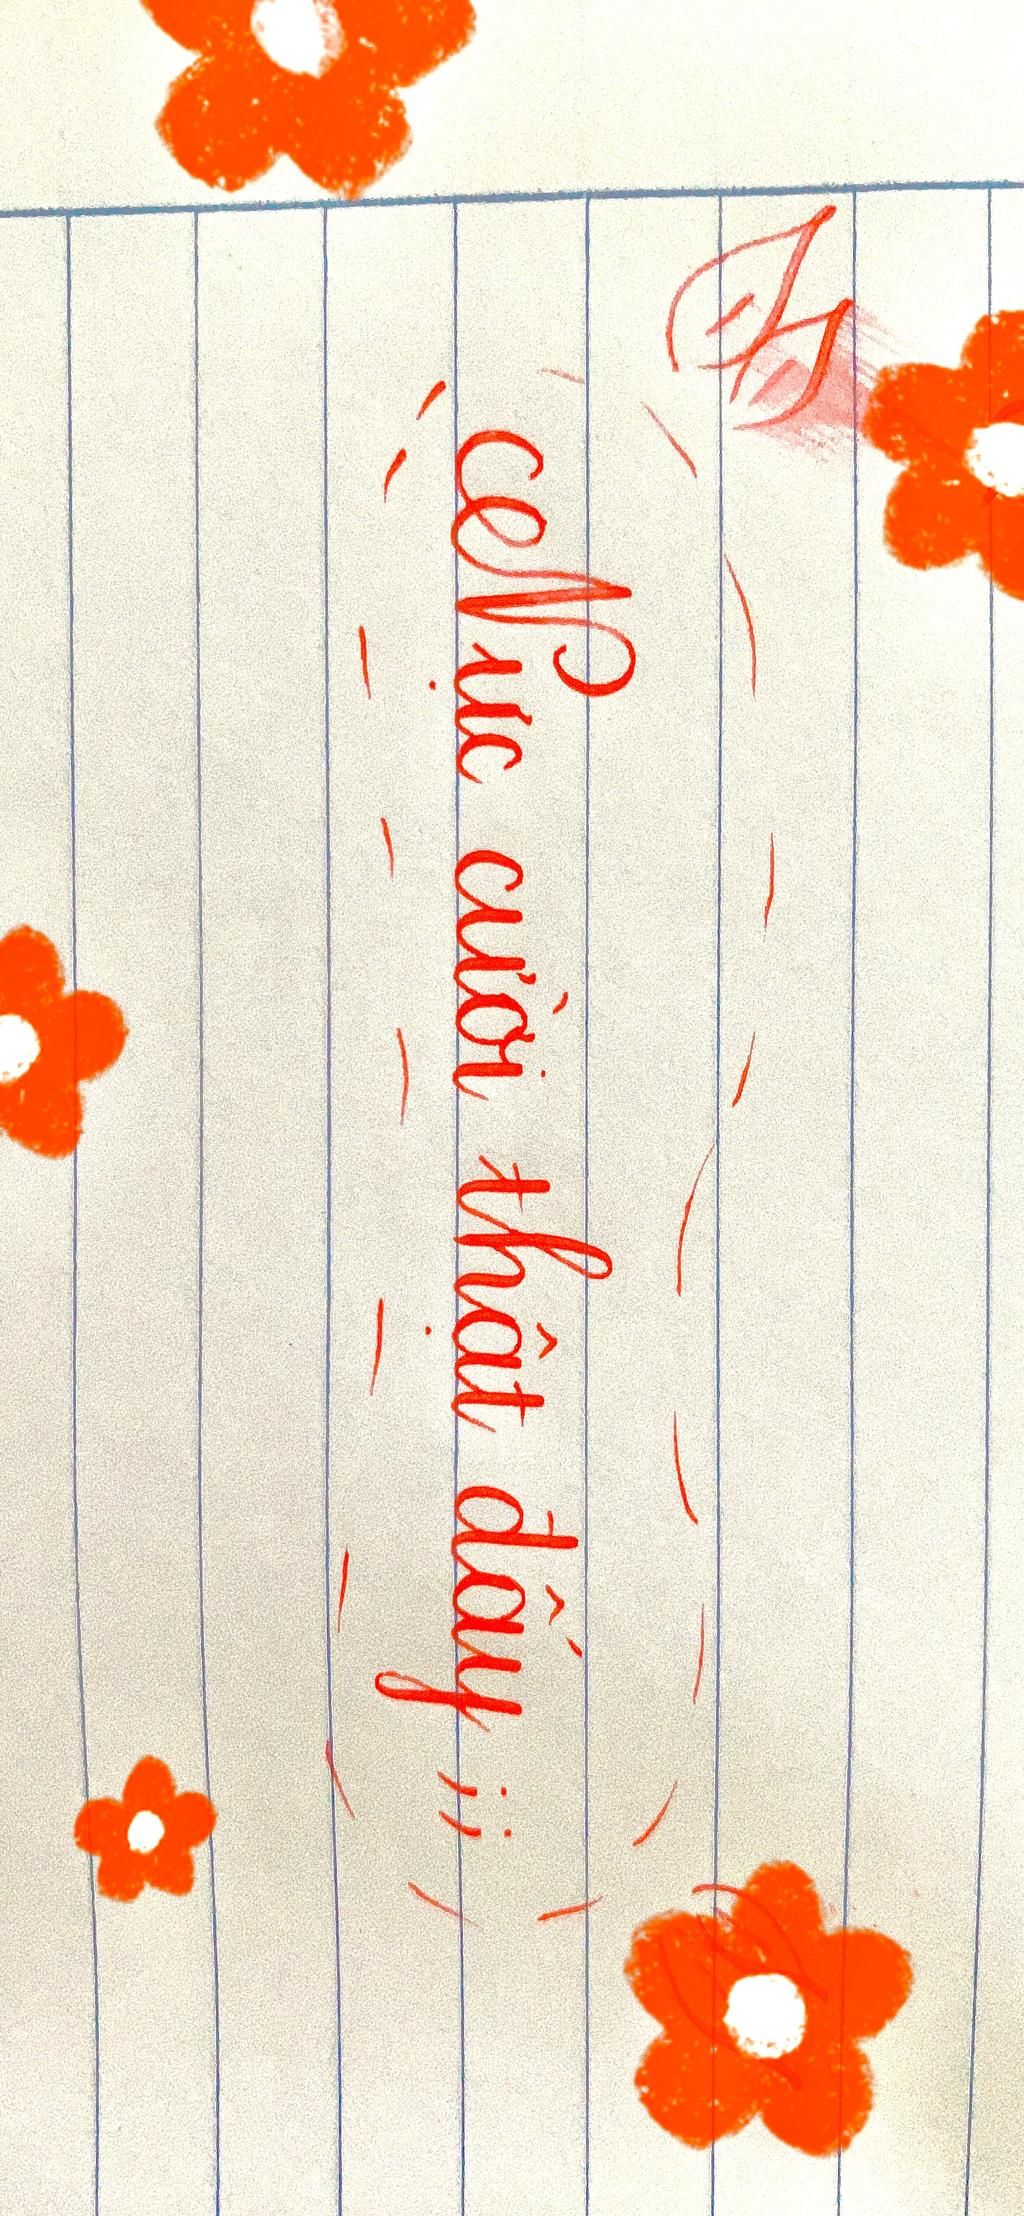 Nực cười thật đấy ;;